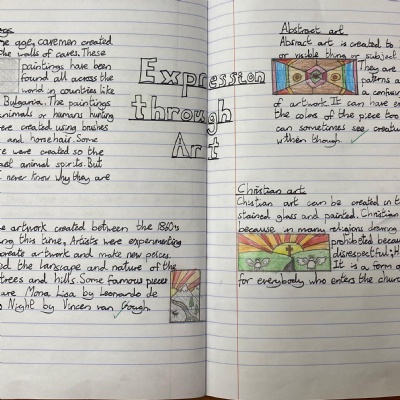 ngs
he age, cavemen created
the walls of caves. These
paintings have been
found all across the
world in countries like
Bulgaria. The paintings
animals or humans hunting
ere created using brushes
and horsehair. Some
were created so the
east animal spirits. But
never know why they are
Expression
through
Art
Abstract art
Absract art is created to
or visible thing or subject
They are
patterns a
a confusin
of artwork. It can have e
the colors of the piece too
can sometimes see creatu
within though.
e artwork created between the 1860s
ng this time, Artists were experimenting
create artwork and make new peices.
d the lanscape and nature of the
trees and hills. Some famous pieces
are Mona Lisa by Leonardo de
Night by Vincen van Gough.
Christian art
Chistian art can be created in t
stained glass and painted. Christian
because in many religions drawing
prohibited becaus
disrespectful; H
It is a form o
for everybody who enters the churc